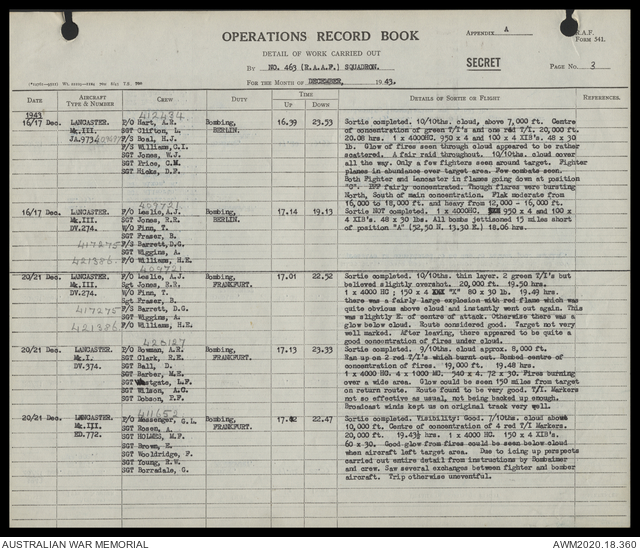 OPERATIONS RECORD BOOK
APPENDIX A
R.A.F. FORM 541.
DETAIL OF WORK CARRIED OUT
BY NO. 463 (R.A.A.F.) SQUADRON.
SECRET
PAGE No. 3
FOR THE MONTH OF DECEMBER, 1943.
DATE AIRCRAFT TYPE & NUMBER CREW DUTY TIME UP DOWN DETAILS OF SORTIE OR FLIGHT REFERENCES.
1943
412434
16/17 Dec. LANCASTER. P/O Hart, A.R. Bombing, 16.39 23.53 Sortie completed. 10/10ths. cloud, above 7,000 ft. Centre
Mk.III. SGT Clifton, L. BERLIN. of concentration of green T/I's and one red T/I. 20,000 ft.
JA.973 F/S Boal, H.J. 20.08 hrs. 1 x 4000HC, 950 x 4 and 100 x 4 XIB's. 48 x 30
F/S Williams, C.I. lb. Glow of fires seen through cloud appeared to be rather
SGT Jones, W.J. scattered. A fair raid throughout. 10/10ths. cloud cover
SGT Price, C.M. all the way. Only a few fighters seen around target. Fighter
SGT Hicks, D.F. planes in abundance over target area. Few combats seen.
Both Fighter and Lancaster in flames going down at position
"C". fairly concentrated. Though flares were burning
North, South of main concentration. Flak moderate from
16,000 to 18,000 ft. and heavy from 12,000 - 16,000 ft.
409721
16/17 Dec. LANCASTER. P/O Leslie, A.J. Bombing, 17.14 19.13 Sortie NOT completed. 1 x 4000HC, 950 x 4 and 100 x
Mk.III. SGT Jones, R.R. BERLIN. 4 XIB's. 48 x 30 lbs. All bombs jettisoned 15 miles short
DV.274. W/O Finn, T. of position "A" (52,50 N, 13.30 E.) 18.06 hrs.
SGT Fraser, B.
417275 F/S Barrett, D.G.
SGT Wiggins, A.
421386. F/O Williams, H.E.
409721
20/21 Dec. LANCASTER. P/O Leslie, A.J. Bombing, 17.01 22.52 Sortie completed. 10/10ths. thin layer. 2 green T/I's but
Mk.III. Sgt Jones, R.R. FRANKFURT. believed slightly overshot. 20,000 ft. 19.50 hrs.
DV.274. W/O Finn, T. 1 x 4000 HC ; 150 x 4 "X" 80 x 30 lb. 19.49 hrs.
Sgt Fraser, B. there was a fairly large explosion with red flame which was
417275 F/S Barrett, D.G. quite obvious above cloud and instantly went out again. This
SGT Wiggins, A. was slightly E. of centre of attack. Otherwise there was a
421386 F/O Williams, H.E. glow below cloud. Route considered good. Target not very
well marked. After leaving, there appeared to be quite a
good concentration of fires under cloud.
20/21 Dec. LANCASTER. P/O Bowman, A.R. Bombing, 17.13 23.33 Sortie completed. 9/10ths. cloud approx. 8,000 ft.
Mk.I. SGT Clark, R.E. FRANKFURT. Ran up on 2 red T/I's which burnt out. Bombed centre of
DV.374. SGT Ball, D. concentration of fires. 19,000 ft. 19.48 hrs.
SGT Barber, M.E. 1 x 4000 HC. 4 x 1000 MC. 540 x 4. 72 x 30. Fires burning
SGT Westgate, L.F. over a wide area. Glow could be seen 150 miles from target
SGT Wilson, A.G. on return route. Route found to be very good. T/I. Markers
SGT Dobson, T.F. not so effective as usual, not being backed up enough.
Broadcast winds kept us on original track very well.
411652
20/21 Dec. LANCASTER. P/O Messenger, G.L. Bombing, 22.47 Sortie completed. Visibility: Good. 7/10ths. cloud above
Mk.III. SGT Rosen, A. FRANKFURT. 10,000 ft. Centre of concentration of 4 red T/I Markers.
ED.772. SGT HOLMES, M.F. 20,000 ft. 19.43½ hrs. 1 x 4000 HC. 150 x 4 XIB's.
SGT Brown, E. 60 x 30. Good glow from fires could be seen below cloud
SGT Wooldridge, F. when aircraft left target area. Due to icing up perspects
SGT Young, R.W. carried out entire detail from instructions by Bombaimer
SGT Borradale, G. and crew. Saw several exchanges between fighter and bomber
aircraft. Trip otherwise uneventful.
AUSTRALIAN WAR MEMORIAL
AWM2020.18.360